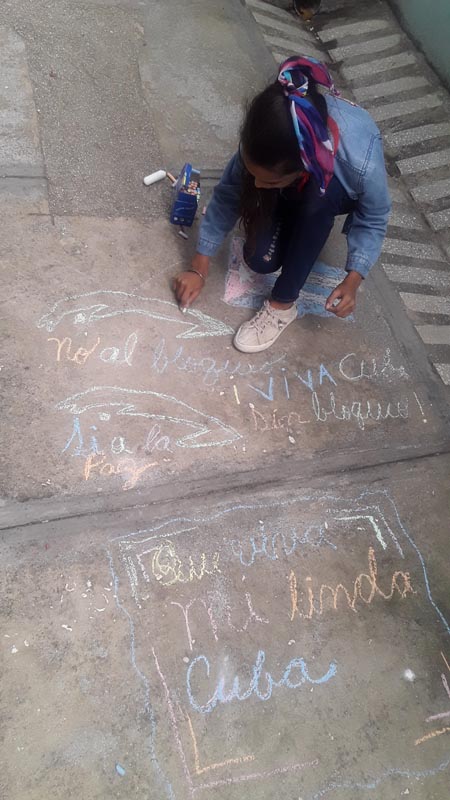 No al bloqueo
¡VIVA Cuba
Sin bloqueo!
Si a la
Paz
Que viva
mi linda
Cuba